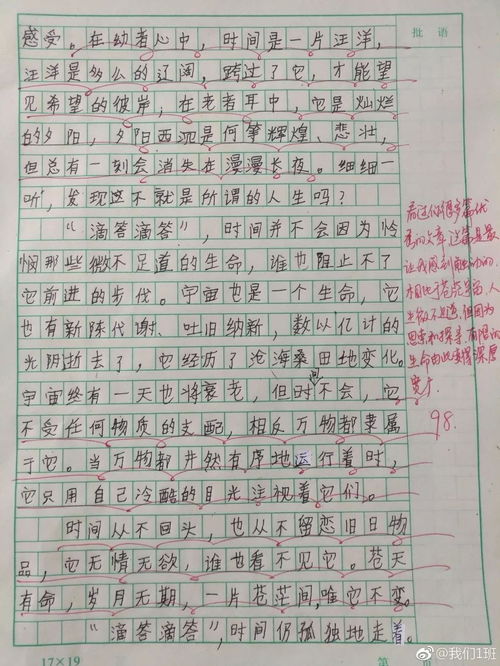 批语
感受。在幼者心中，时间是一片汪洋，
汪洋是多么的辽阔，跨过了它，才能望
见希望的彼岸，在老者耳中，它是灿烂
的夕阳，夕阳西沉是何等辉煌、悲壮，
但总有一刻会消失在漫漫长夜。细细一
听，发现这不就是所谓的人生吗？
“滴答滴答”，时间并不会因为怜
悯那些微不足道的生命，谁也阻止不了
它前进的步伐。宇宙也是一个生命，它
也有新陈代谢、吐旧纳新，数以亿计的
光阴逝去了，它经历了沧海桑田地变化。
宇宙终有一天也将衰老，但时间不会，它
不受任何物质的支配，相反万物都隶属
于它。当万物都井然有序地运行着时，
它只用自己冷酷的目光注视着它们。
时间从不回头，也从不留恋旧日物
品，它无情无欲，谁也看不见它。苍天
有命，岁月无期，一片苍茫间，唯它不变。
“滴答滴答”，时间仍孤独地走着。
看过你很多篇优
秀的文章，这篇是最
让我感到触动的。
相比于苍茫宇宙，人
生微不足道，但因为
思索和探寻，有限的
生命由此变得深厚
宽广。
98.
17×19
第
@我们1班